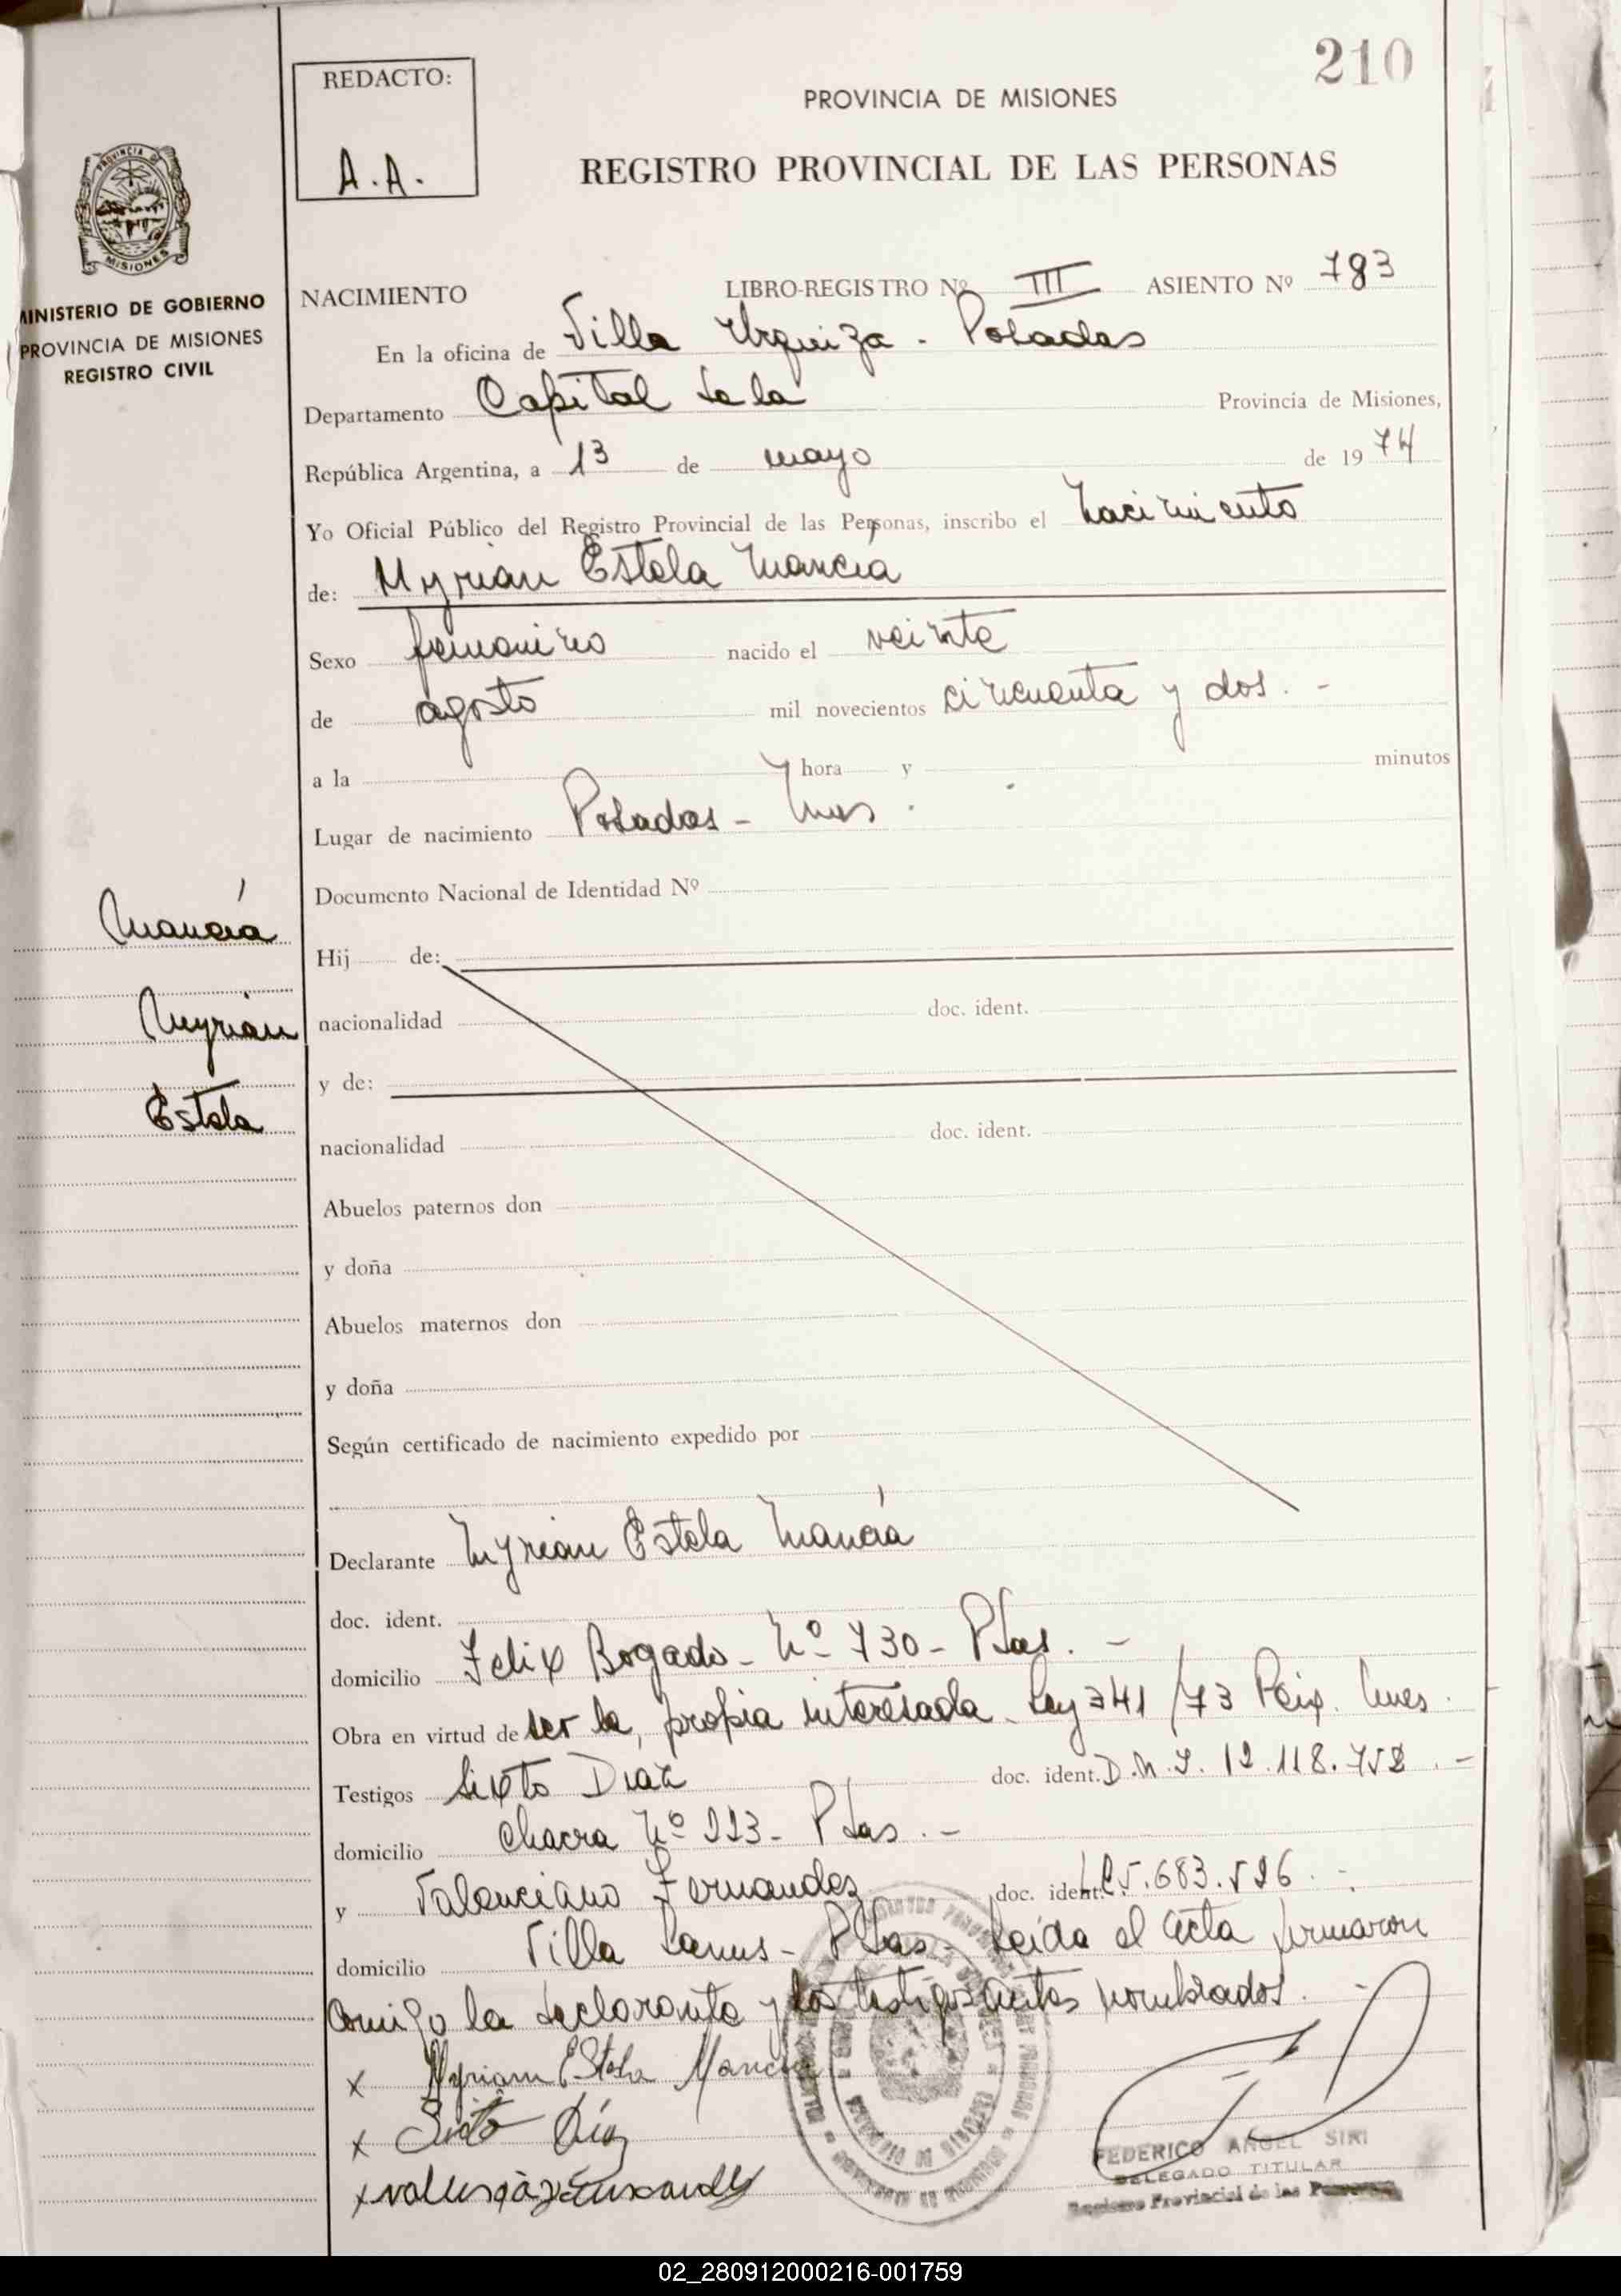 210
REDACTO:
A.A.
PROVINCIA DE MISIONES
REGISTRO PROVINCIAL DE LAS PERSONAS
PROVINCIA DE
MISIONES
MINISTERIO DE GOBIERNO
PROVINCIA DE MISIONES
REGISTRO CIVIL
NACIMIENTO LIBRO-REGISTRO Nº III ASIENTO Nº 783
En la oficina de Villa Urquiza - Posadas
Departamento Capital de la Provincia de Misiones,
República Argentina, a 13 de mayo de 1974
Yo Oficial Público del Registro Provincial de las Personas, inscribo el nacimiento
de: Myrian Estela Mancia
Sexo femenino nacido el veinte
de agosto mil novecientos cincuenta y dos. -
a la hora y minutos
Lugar de nacimiento Posadas - Mnes.
Documento Nacional de Identidad Nº
Mancía
Myrian
Estela
Hij de:
nacionalidad doc. ident.
y de:
nacionalidad doc. ident.
Abuelos paternos don
y doña
Abuelos maternos don
y doña
Según certificado de nacimiento expedido por
Declarante Myrian Estela Mancía
doc. ident.
domicilio Felix Bogado - Nº 730 - Pdas. -
Obra en virtud de ser la propia interesada - Ley 341/73
Testigos Sixto Diaz doc. ident. D.N.I. 12.118.752. -
domicilio Chacra Nº 223 - Pdas. -
y Valenciano Fernandez doc. ident. 5.683.526. -
domicilio Villa Lanus - Pdas - Leida el acta firmaron
conmigo la declarante y los testigos antes nombrados. -
x Myriam Estela Mancia
x Sixto Díaz
x
FEDERICO ANGEL SIRI
DELEGADO TITULAR
Registro Provincial de las Personas
02_280912000216-001759